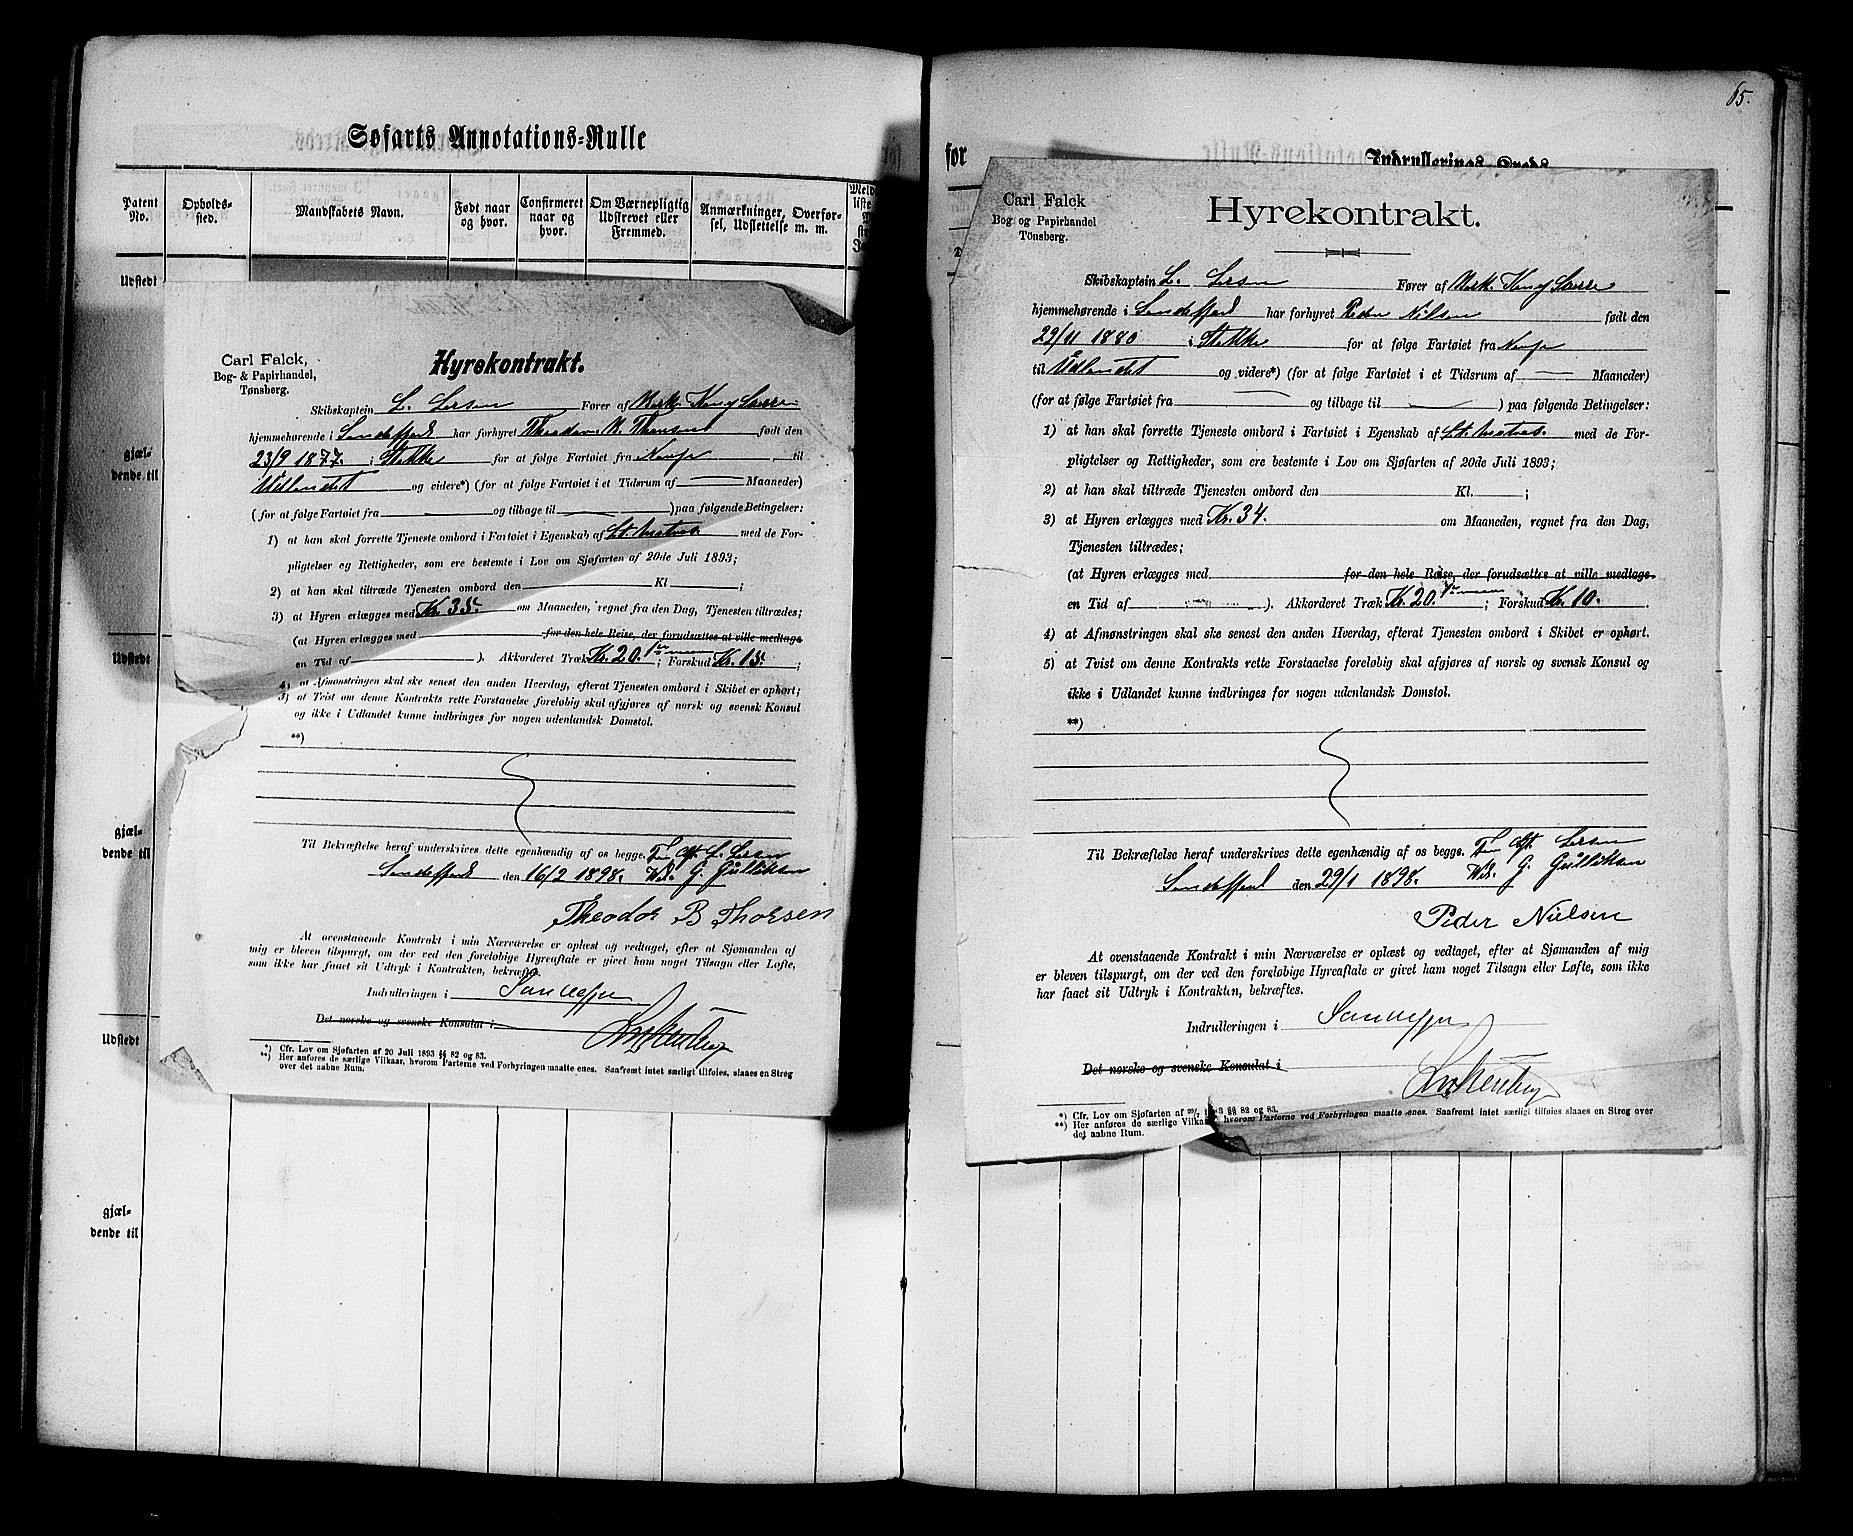 65.
Søfarts Annotations-Rulle
for
Indrullerings-Kreds
Patent No.
Opholds-sted.
Mandskabets Navn.
Født naar og hvor.
Confirmeret naar og hvor.
Om Værnepligtig Udskrevet eller Fremmed.
Anmærkninger, Overførsel, Udslettelse m. m.
Udstedt
gjæl-
dende til
Udstedt
gjæl-
dende til
Udstedt
gjæl-
dende til
Carl Falck,
Bog- & Papirhandel,
Tønsberg.
Hyrekontrakt.
Skibskaptein L. Larsen Fører af Bark. Kong Sverre
hjemmehørende i Sandefjord har forhyret Theodor B. Thorsen født den
23/9 1877. i Stokke for at følge Fartøiet fra Norge til
Udlandet og videre*) (for at følge Fartøiet i et Tidsrum af — Maaneder)
(for at følge Fartøiet fra — og tilbage til — ) paa følgende Betingelser:
1) at han skal forrette Tjeneste ombord i Fartøiet i Egenskab af Lt. Matros med de For-
pligtelser og Rettigheder, som ere bestemte i Lov om Sjøfarten af 20de Juli 1893;
2) at han skal tiltræde Tjenesten ombord den Kl ;
3) at Hyren erlægges med Kr. 35. om Maaneden, regnet fra den Dag, Tjenesten tiltrædes;
(at Hyren erlægges med for den hele Reise, der forudsættes at ville medtage
en Tid af ). Akkorderet Træk Kr. 20. ; Forskud Kr. 15. ;
4) at Afmønstringen skal ske senest den anden Hverdag, efterat Tjenesten ombord i Skibet er ophørt;
5) at Tvist om denne Kontrakts rette Forstaaelse foreløbig skal afgjøres af norsk og svensk Konsul
og ikke i Udlandet kunne indbringes for nogen udenlandsk Domstol.
**)
Til Bekræftelse heraf underskrives dette egenhændig af os begge. For Cpt. L. Larsen
Sandefjord den 16/2 1898. G. Gulliksen
Theodor B Thorsen
At ovenstaaende Kontrakt i min Nærværelse er oplæst og vedtaget, efter at Sjømanden af
mig er bleven tilspurgt, om der ved den foreløbige Hyreaftale er givet ham noget Tilsagn eller Løfte,
som ikke har faaet sit Udtryk i Kontrakten, bekræftes.
Indrulleringen i Sandefjord
Det norske og svenske Konsulat i
*) Cfr. Lov om Sjøfarten af 20 Juli 1893 §§ 82 og 83.
**) Her anføres de særlige Vilkaar, hvorom Parterne ved Forhyringen maatte enes. Saafremt intet særligt tilføies, slaaes en Streg
over det aabne Rum.
Carl Falck
Bog og Papirhandel
Tønsberg.
Hyrekontrakt.
Skibskaptein L. Larsen Fører af Bark. Kong Sverre
hjemmehørende i Sandefjord har forhyret Peder Nilsen født den
29/11 1880 i Stokke for at følge Fartøiet fra Norge
til Udlandet og videre*) (for at følge Fartøiet i et Tidsrum af — Maaneder)
(for at følge Fartøiet fra — og tilbage til — ) paa følgende Betingelser:
1) at han skal forrette Tjeneste ombord i Fartøiet i Egenskab af Lt. Matros. med de For-
pligtelser og Rettigheder, som ere bestemte i Lov om Sjøfarten af 20de Juli 1893;
2) at han skal tiltræde Tjenesten ombord den Kl. ;
3) at Hyren erlægges med Kr. 34. om Maaneden, regnet fra den Dag,
Tjenesten tiltrædes;
(at Hyren erlægges med for den hele Reise, der forudsættes at ville medtage
en Tid af ). Akkorderet Træk Kr. 20. ; Forskud Kr. 10. .
4) at Afmønstringen skal ske senest den anden Hverdag, efterat Tjenesten ombord i Skibet er ophørt.
5) at Tvist om denne Kontrakts rette Forstaaelse foreløbig skal afgjøres af norsk og svensk Konsul og
ikke i Udlandet kunne indbringes for nogen udenlandsk Domstol.
**)
Til Bekræftelse heraf underskrives dette egenhændig af os begge. For Cpt. Larsen
Sandefjord den 29/1 1898. G. Gulliksen
Peder Nielsen
At ovenstaaende Kontrakt i min Nærværelse er oplæst og vedtaget, efter at Sjømanden af mig
er bleven tilspurgt, om der ved den foreløbige Hyreaftale er givet ham noget Tilsagn eller Løfte, som ikke
har faaet sit Udtryk i Kontrakten, bekræftes.
Indrulleringen i Sandefjord
Det norske og svenske Konsulat i
*) Cfr. Lov om Sjøfarten af 20/7 1893 §§ 82 og 83.
**) Her anføres de særlige Vilkaar, hvorom Parterne ved Forhyringen maatte enes. Saafremt intet særligt tilføies slaaes en Streg over
det aabne Rum.